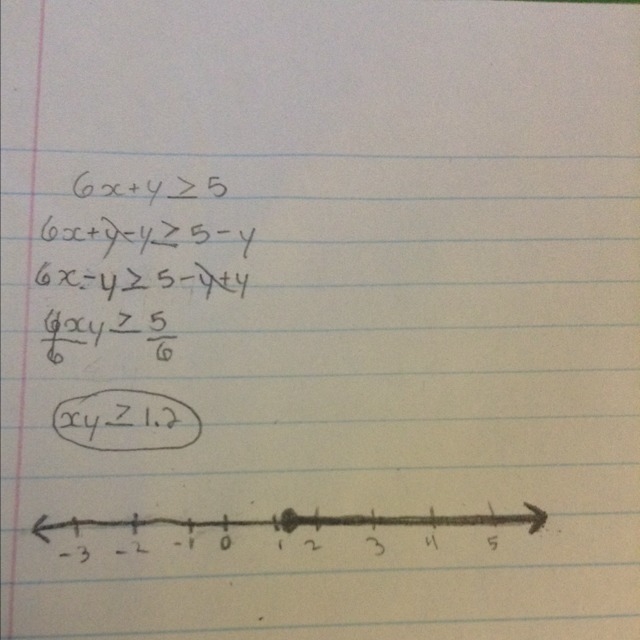 6x+y ≥ 5
6x+y-y ≥ 5-y
6x-y ≥ 5-y+y
6xy/6 ≥ 5/6
xy ≥ 1.2
-3 -2 -1 0 1 2 3 4 5